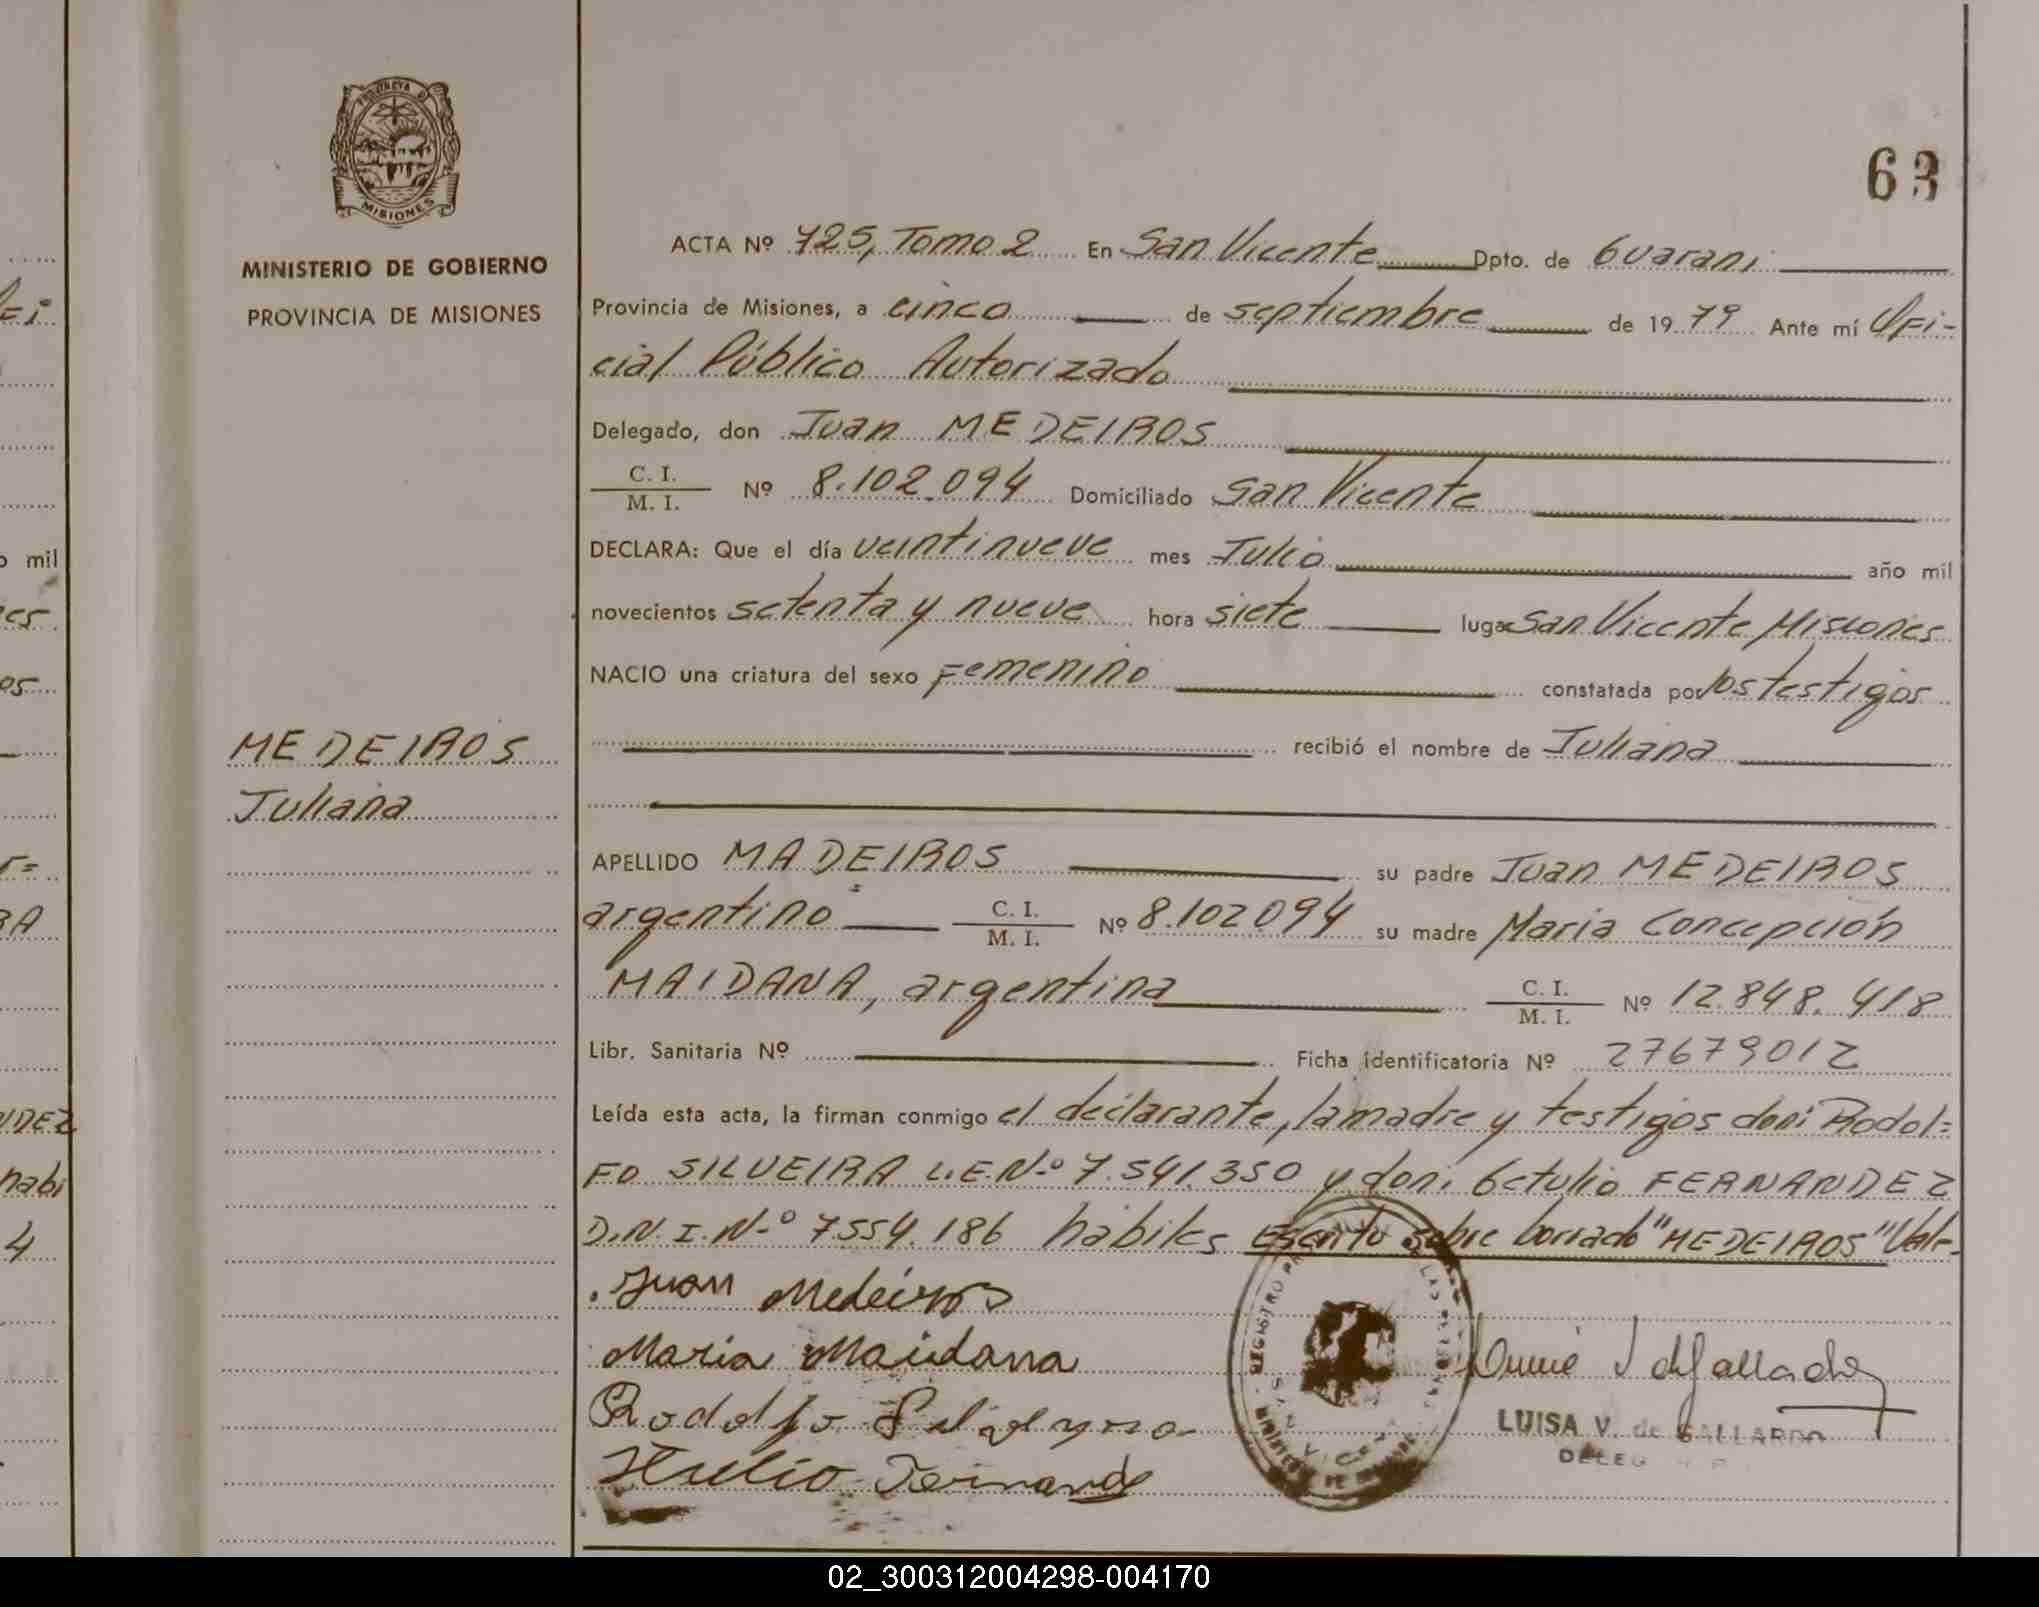 63
PROVINCIA D
MISIONES
MINISTERIO DE GOBIERNO
PROVINCIA DE MISIONES
ACTA Nº 725, Tomo 2 En San Vicente Dpto. de Guarani
Provincia de Misiones, a cinco de septiembre de 19 79 Ante mí Ofi-
cial Público Autorizado
Delegado, don Juan MEDEIROS
C. I.
M. I. Nº 8.102.094 Domiciliado San Vicente
DECLARA: Que el día veintinueve mes Julio año mil
novecientos setenta y nueve hora siete lugar San Vicente Misiones
NACIO una criatura del sexo Femenino constatada por los testigos
recibió el nombre de Juliana
MEDEIROS
Juliana
APELLIDO MADEIROS su padre Juan MEDEIROS
argentino C. I.
M. I. Nº 8.102094 su madre Maria Concepción
MAIDANA, argentina C. I.
M. I. Nº 12.848.418
Libr. Sanitaria Nº Ficha identificatoria Nº 27679012
Leída esta acta, la firman conmigo el declarante, la madre y testigos don: Rodol=
FO SILVEIRA L.E.N-º 7.541.350 y don: Getulio FERNANDEZ
D.N.I.N-º 7.554.186 hábiles Escrito sobre borrado "MEDEIROS" Vale-
Juan Medeiros
Maria Maidana
Rodolfo
LUISA V. de GALLARDO
DELEG
o mil
02_300312004298-004170